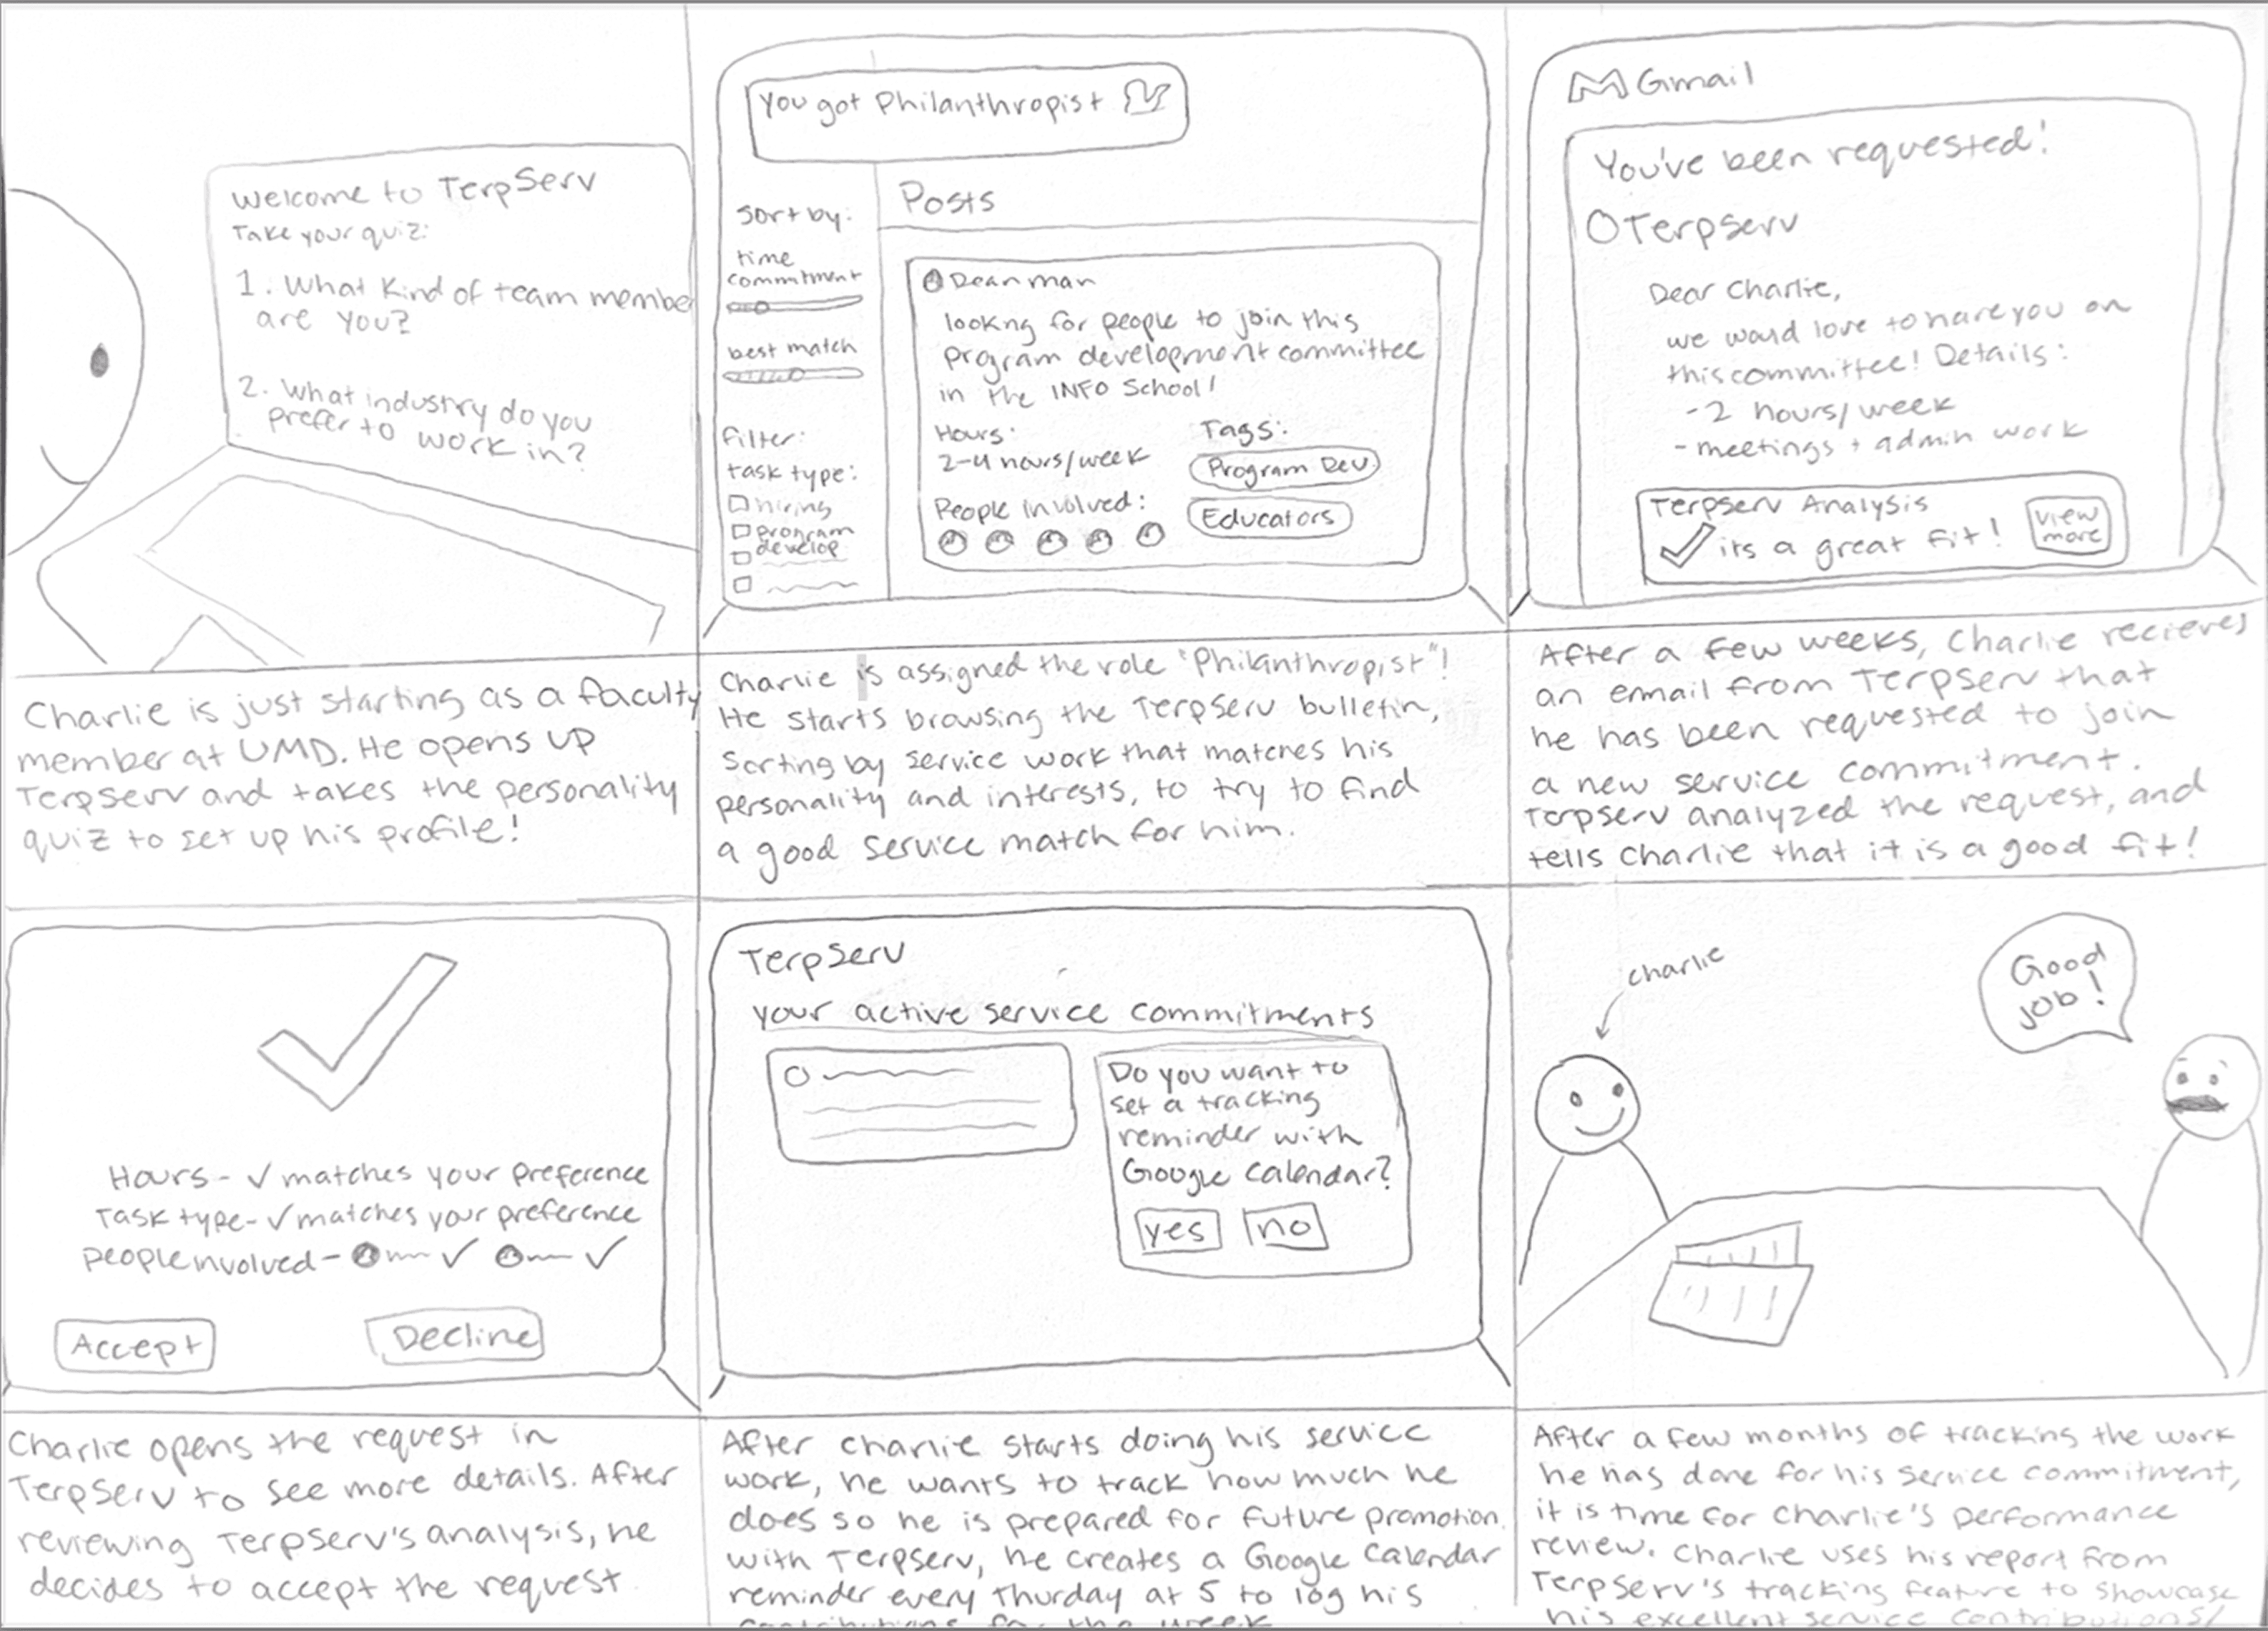 Welcome to TerpServ
Take your quiz:
1. What kind of team member
are you?
2. What industry do you
prefer to work in?
Charlie is just starting as a faculty
member at UMD. He opens up
TerpServ and takes the personality
quiz to set up his profile!
You got Philanthropist
Sort by:
time
commitment
best match
filter:
task type:
hiring
program
develop
Posts
Dean man
lookng for people to join this
program development committee
in the INFO School!
Hours:
2-4 hours/week
People involved:
Tags:
Program Dev
Educators
Charlie is assigned the role "Philanthropist"!
He starts browsing the TerpServ bulletin,
sorting by service work that matches his
personality and interests, to try to find
a good service match for him.
Gmail
You've been requested!
Terpserv
Dear Charlie,
we would love to have you on
this committee! Details:
- 2 hours/week
- meetings + admin work
Terpserv Analysis
its a great fit!
view
more
After a few weeks, Charlie recieves
an email from Terpserv that
he has been requested to join
a new service commitment.
Terpserv analyzed the request, and
tells Charlie that it is a good fit!
Hours - ✓ matches your preference
Task type - ✓ matches your preference
people involved - ✓ ✓
Accept
Decline
Charlie opens the request in
TerpServ to see more details. After
reviewing Terpserv's analysis, he
decides to accept the request
TerpServ
your active service commitments
Do you want to
set a tracking
reminder with
Google calendar?
yes
no
After Charlie starts doing his service
work, he wants to track how much he
does so he is prepared for future promotion.
with Terpserv, he creates a Google Calendar
reminder every Thurday at 5 to log his
contributions for the week
charlie
Good
job!
After a few months of tracking the work
he has done for his service commitment,
it is time for Charlie's performance
review. Charlie uses his report from
TerpServ's tracking feature to showcase
his excellent service contributions!